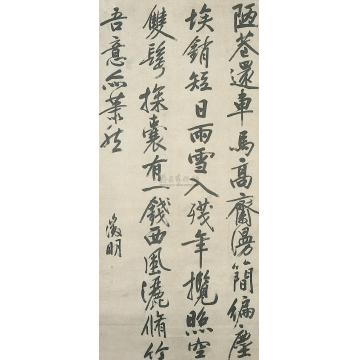 陋巷還車馬高齋漫簡編塵
埃銷短日雨雪入殘年攬照空
雙鬢探囊有一錢西風灑脩竹
吾意亦蕭然
徵明